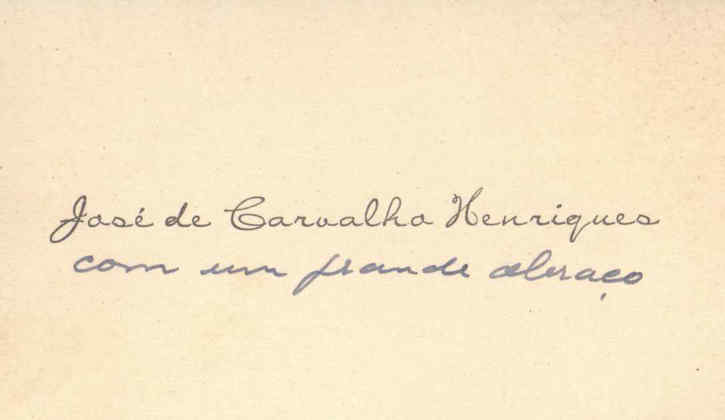 José de Carvalho Henriques
com um grande abraço